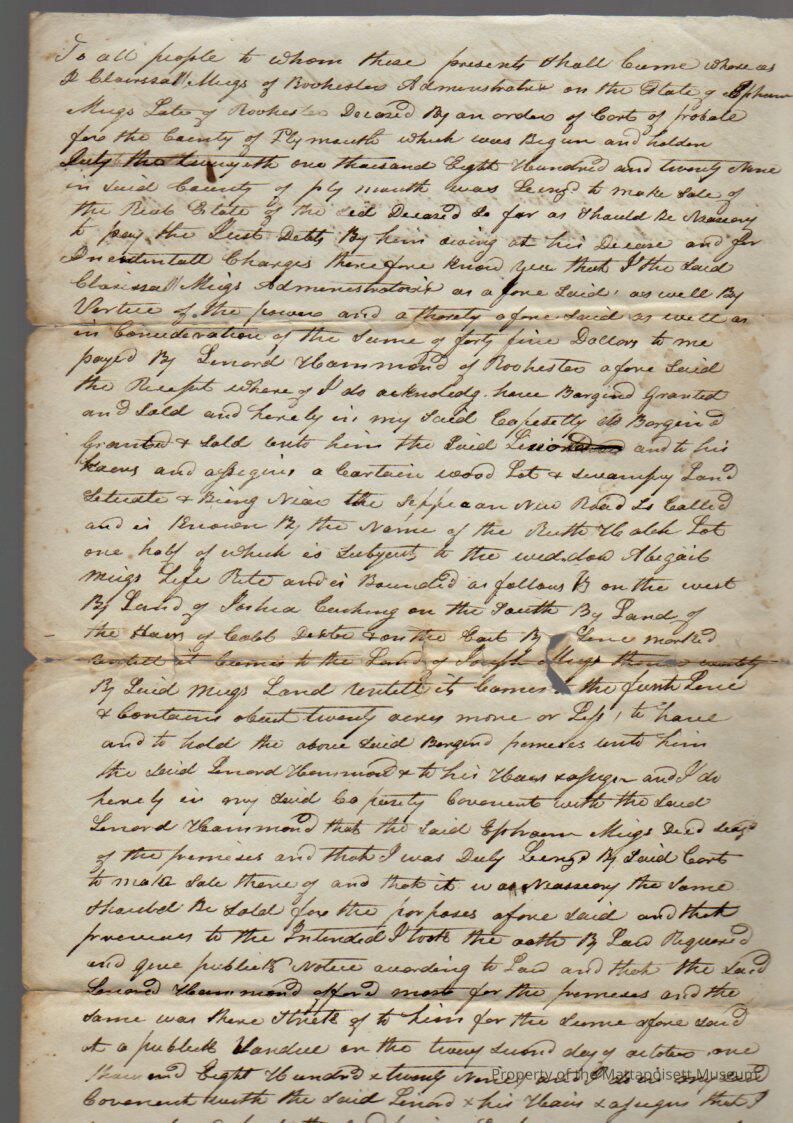 To all people to whom these presents shall Come where as
I Clairssa Meigs of Rochester Administratrix on the Estate of Ephraim
Meigs Late of Rochester Deceasd By an order of Cort of probate
for the County of Plymouth which was Begun and holden
July the twenyeth one thousand Eight Hundred and twenty Nine
in said County of plymouth was Lecinsd to make Sale of
the Real Estate of the sed Deceasd so far as should Be Nessery
to pay the Just Debts By him owing at his Decease and for
Incidentall Charges there fore know yea that I the Said
Clarissa Meigs Administratorix as a fore Said as well By
Vertue of the power and athorety afore said as well as
in Consideration of the Sume of forty five Dollors to me
payed By Lenord Hammond of Rochester afore said
the Recept where of I do acknoledg have Bargind Granted
and Sold and hereby in my said Capesetty do Borgind
Granted & Sold unto him the Said Lenord and to his
haers and assigins a Cartain wood Lot & swampy Land
Setuate & Being Near the Sippican New Road So Called
and is Known By the Name of the Ruth Lot
one half of which is Subject to the weddow Abigail
Meigs Life Rite and is Bounded as follows on the west
By Land of Joshua Cushing on the South By Land of
the Hairs of Caleb Dexter & on the East By Line marked
untill it Comes to the Land of Joseph Meigs thence
By Said Meigs Land untill it Comes the furst Line
& Contains about twenty acres more or Less, to have
and to hold the above said Bargind premeses unto him
the said Lenord Hammond & to his Hairs & assigns and I do
hereby in my said Capasety Covenent with the said
Lenord Hammond that the Said Ephraem Meigs Died
of the premises and that I was Duly Lecinsd By Said Cort
to make Sale there of and that it was Nessery the Same
should Be Sold for the porposes afore said and that
preveues to the Intended I took the oath By Law Requiered
and give publick Notice acording to Law and that the said
Lenord Hammond offerd most for the premeses and the
same was there Struk of to him for the sume afore said
at a publick Vandue on the tweny second day of october one
thousend Eight Hundrd & twenty Nine and I do in my said
Covenent with the said Lenord & his Hairs & assigns that I
Property of the Mattapoisett Museum